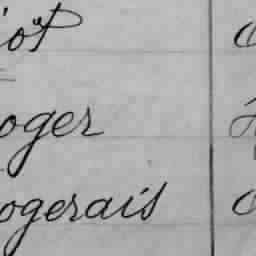 iot
oger
ogerais